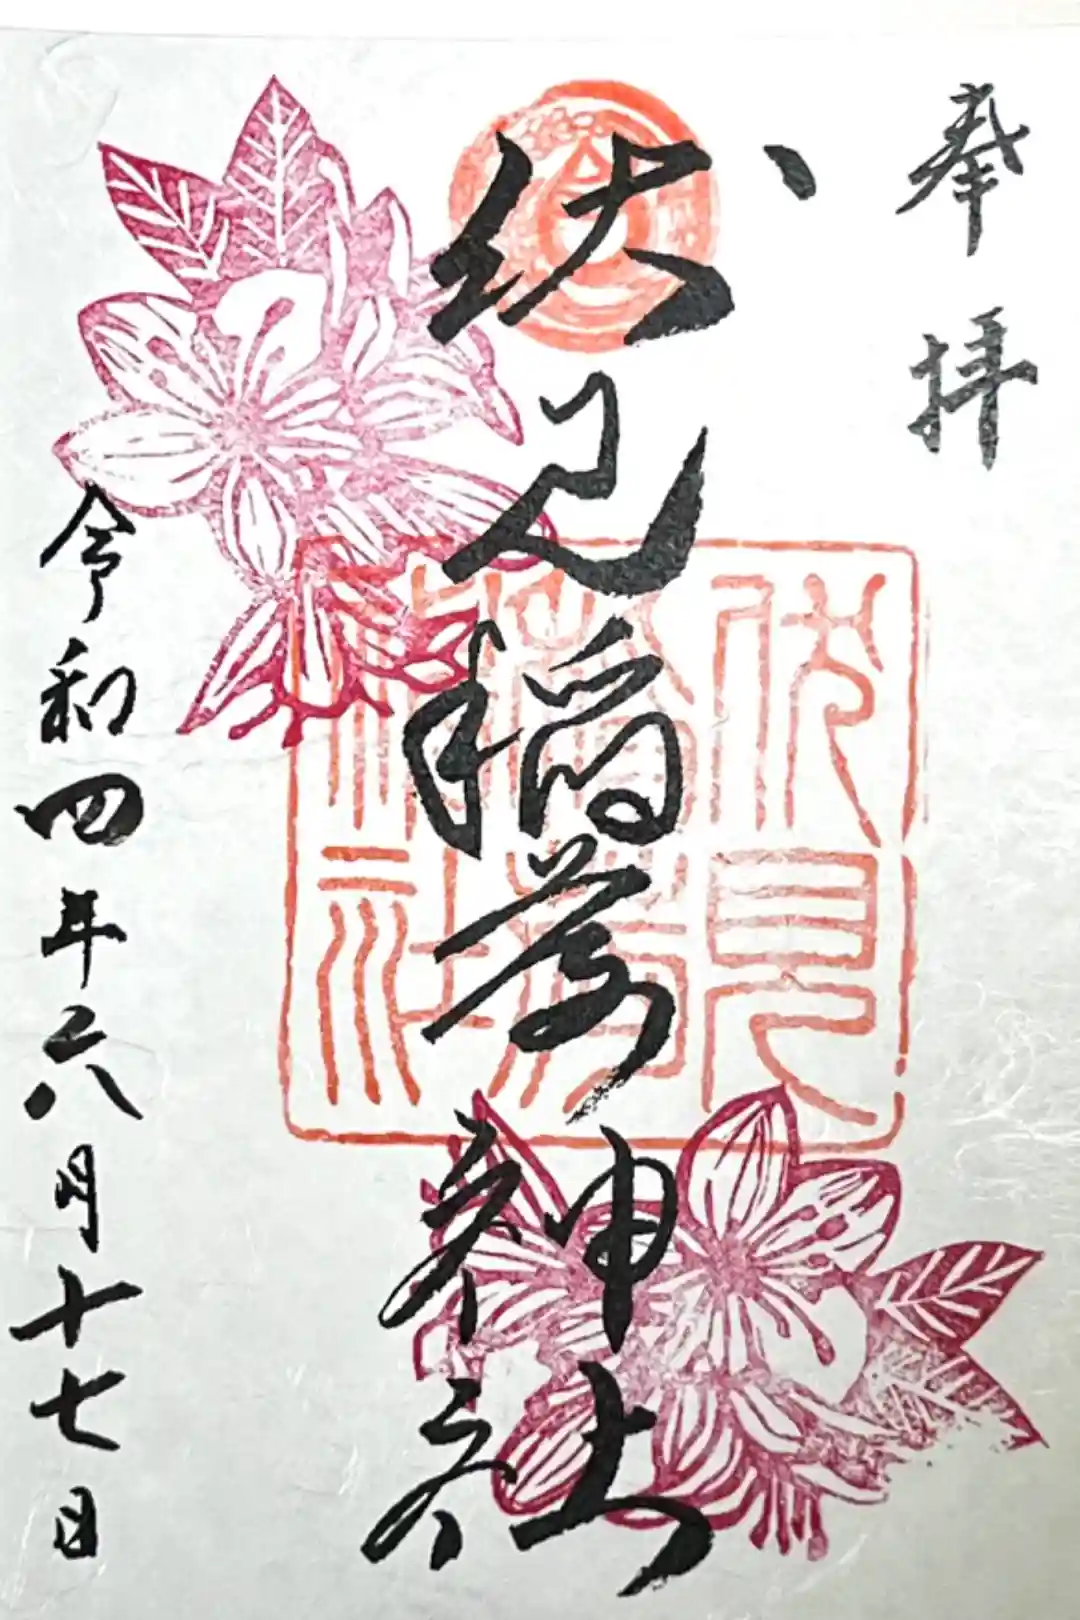 奉拝
伏見稲荷神社
伏見稲荷神社
令和四年六月十七日